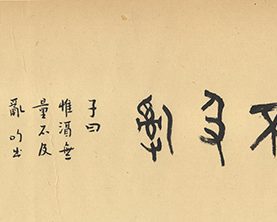 不及亂
子曰
惟酒無
量不及
亂